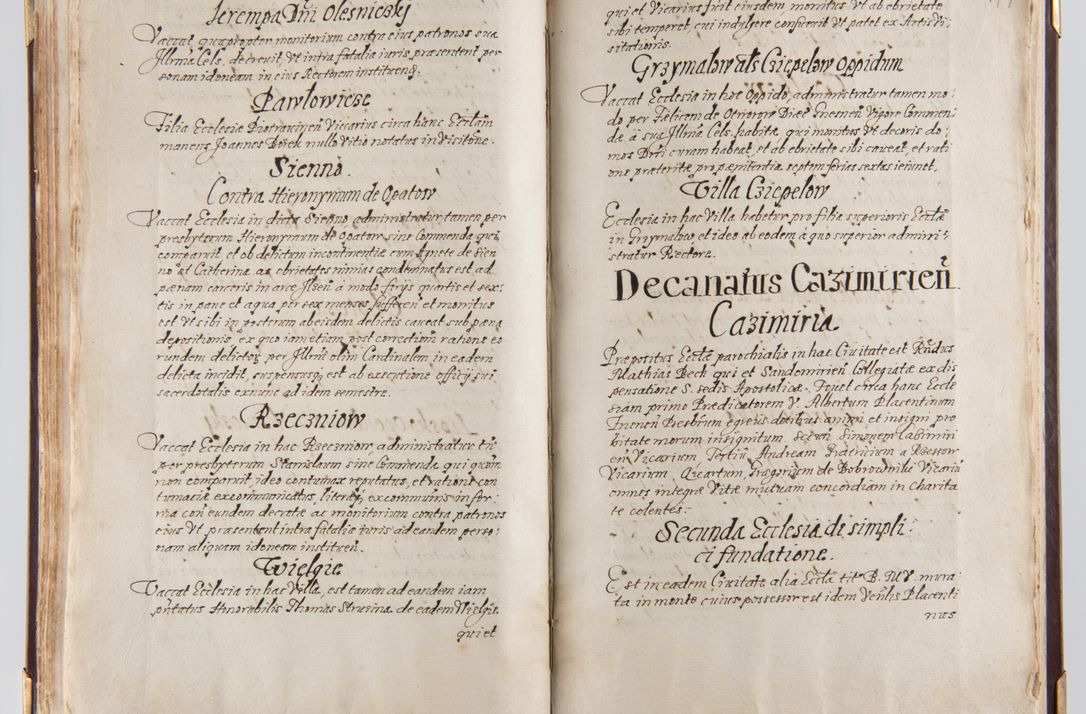 Jerempa Dni Olesniczkj
Vaccat, quapropter monitorium contra eius patronos sua
Illrma Cels. decreuit, Vt intra fatalia iuris præsentent per
sonam idoneam in eius Rectorem instituenđ.
Pawłowicze
Filia Ecclesiæ Piotrawinen̄ Vicarius circa hanc Eccłam
manens Joannes Borek nullo Vitio notatus in Visitōne.
Sienno.
Contra Hieronymum de Opatow
Vaccat Ecclesia in dicta Sienno administratur tamen per
presbyterum Hieronymum de Opatow sine Commenda qui
comparuit et ob delictum incontinentiæ cum Agnete de Sien
no et Catherina ac ebrietates nimias condemnatus est ad
pænam carceris in arce Ilsen̄ a modo ferijs quartis et sex:
tis in pane et aqua per sex menses sufferen̄ et monitus
est Vt sibi in posterum ab eisdem delictis caueat sub pæna
depositionis ex quo iam etiam post correctiōm ratione eo
rundem delictoꝝ per Illrm̄ olim Cardinalem in eadem
delicta incidit, suspensusqꝫ est ab executione officij sui
sacerdotalis exnunc ad idem semestre.
Rzeczniow
Vaccat Ecclesia in hac Rzeczniow, administratur tn̄
per presbyterum Stanislaum sine Commenda, qui quoniam
non comparuit, ideo contumax reputatus, et ratione con
tumaciæ excommunicatus, literæqꝫ excommunicis in for:
ma con eundem decretæ ac monitorium contra patronos
eius Vt præsentent intra fatalia iuris ad eandem perso:
nam aliquam idoneam instituen̄.
Wielgie
Vaccat Ecclesia in hac Villa, est tamen ad eandem iam
pn̄tatus Honorabilis Thomas Strusina de eadem Wielgie
qui et
qui et Vicarius fuit eiusdem monitus Vt ab ebrietate
sibi temperet cui indulgere consueuit Vt patet ex Actis Vi:
sitationis.
Grzymalow als Cziepelow Oppidum
Vaccat Ecclesia in hoc Oppido, administratur tamen mo:
do per Fælicem de Ostrorow Diæc̄ Gnesnen̄ Vigore Commen:
dæ a sua Illma Cels. habitæ qui monitus Vt decoris do:
mos Dei curam habeat, et ab ebrietate sibi caueat, et rati
one præteritæ pro pænitentia septem ferias sextas ieiunet.
Villa Cziepelow
Ecclesia in hac Villa habetur pro filia superioris Ecctæ
in Grzymalow et ideo ab eodem à quo superior admini:
stratur Rectore.
Decanatus Cazimirien̄.
Cazimiria.
Præpositus Ecctæ parochialis in hac Ciuitate est Rn̄dus
Mathias Beck qui et Sandomirien̄ Collegiatæ ex dis
pensatione S. sedis Apostolicæ. Fouet circa hanc Eccle
siam primo Prædicatorem V. Albertum Placentinum
Presbrum egregijs dotibus animi et insigni pro
bitate morum insignitum. Secun̄ Simonem Casimiri
en̄ Vicarium Tertiū, Andream Patricium a Rzessow
Vicarium, Quartum, Gregorium de Dobrowniki Vicariū
omnes integræ Vitæ mutuam concordiam in Charita
te colentes.
Secunda Ecclesia di simpli:
ci fundatione.
Est in eadem Ciuitate alia Ecctā titł B. M V. mura:
ta in monte cuius possessor est idem Venlis Placenti
nus